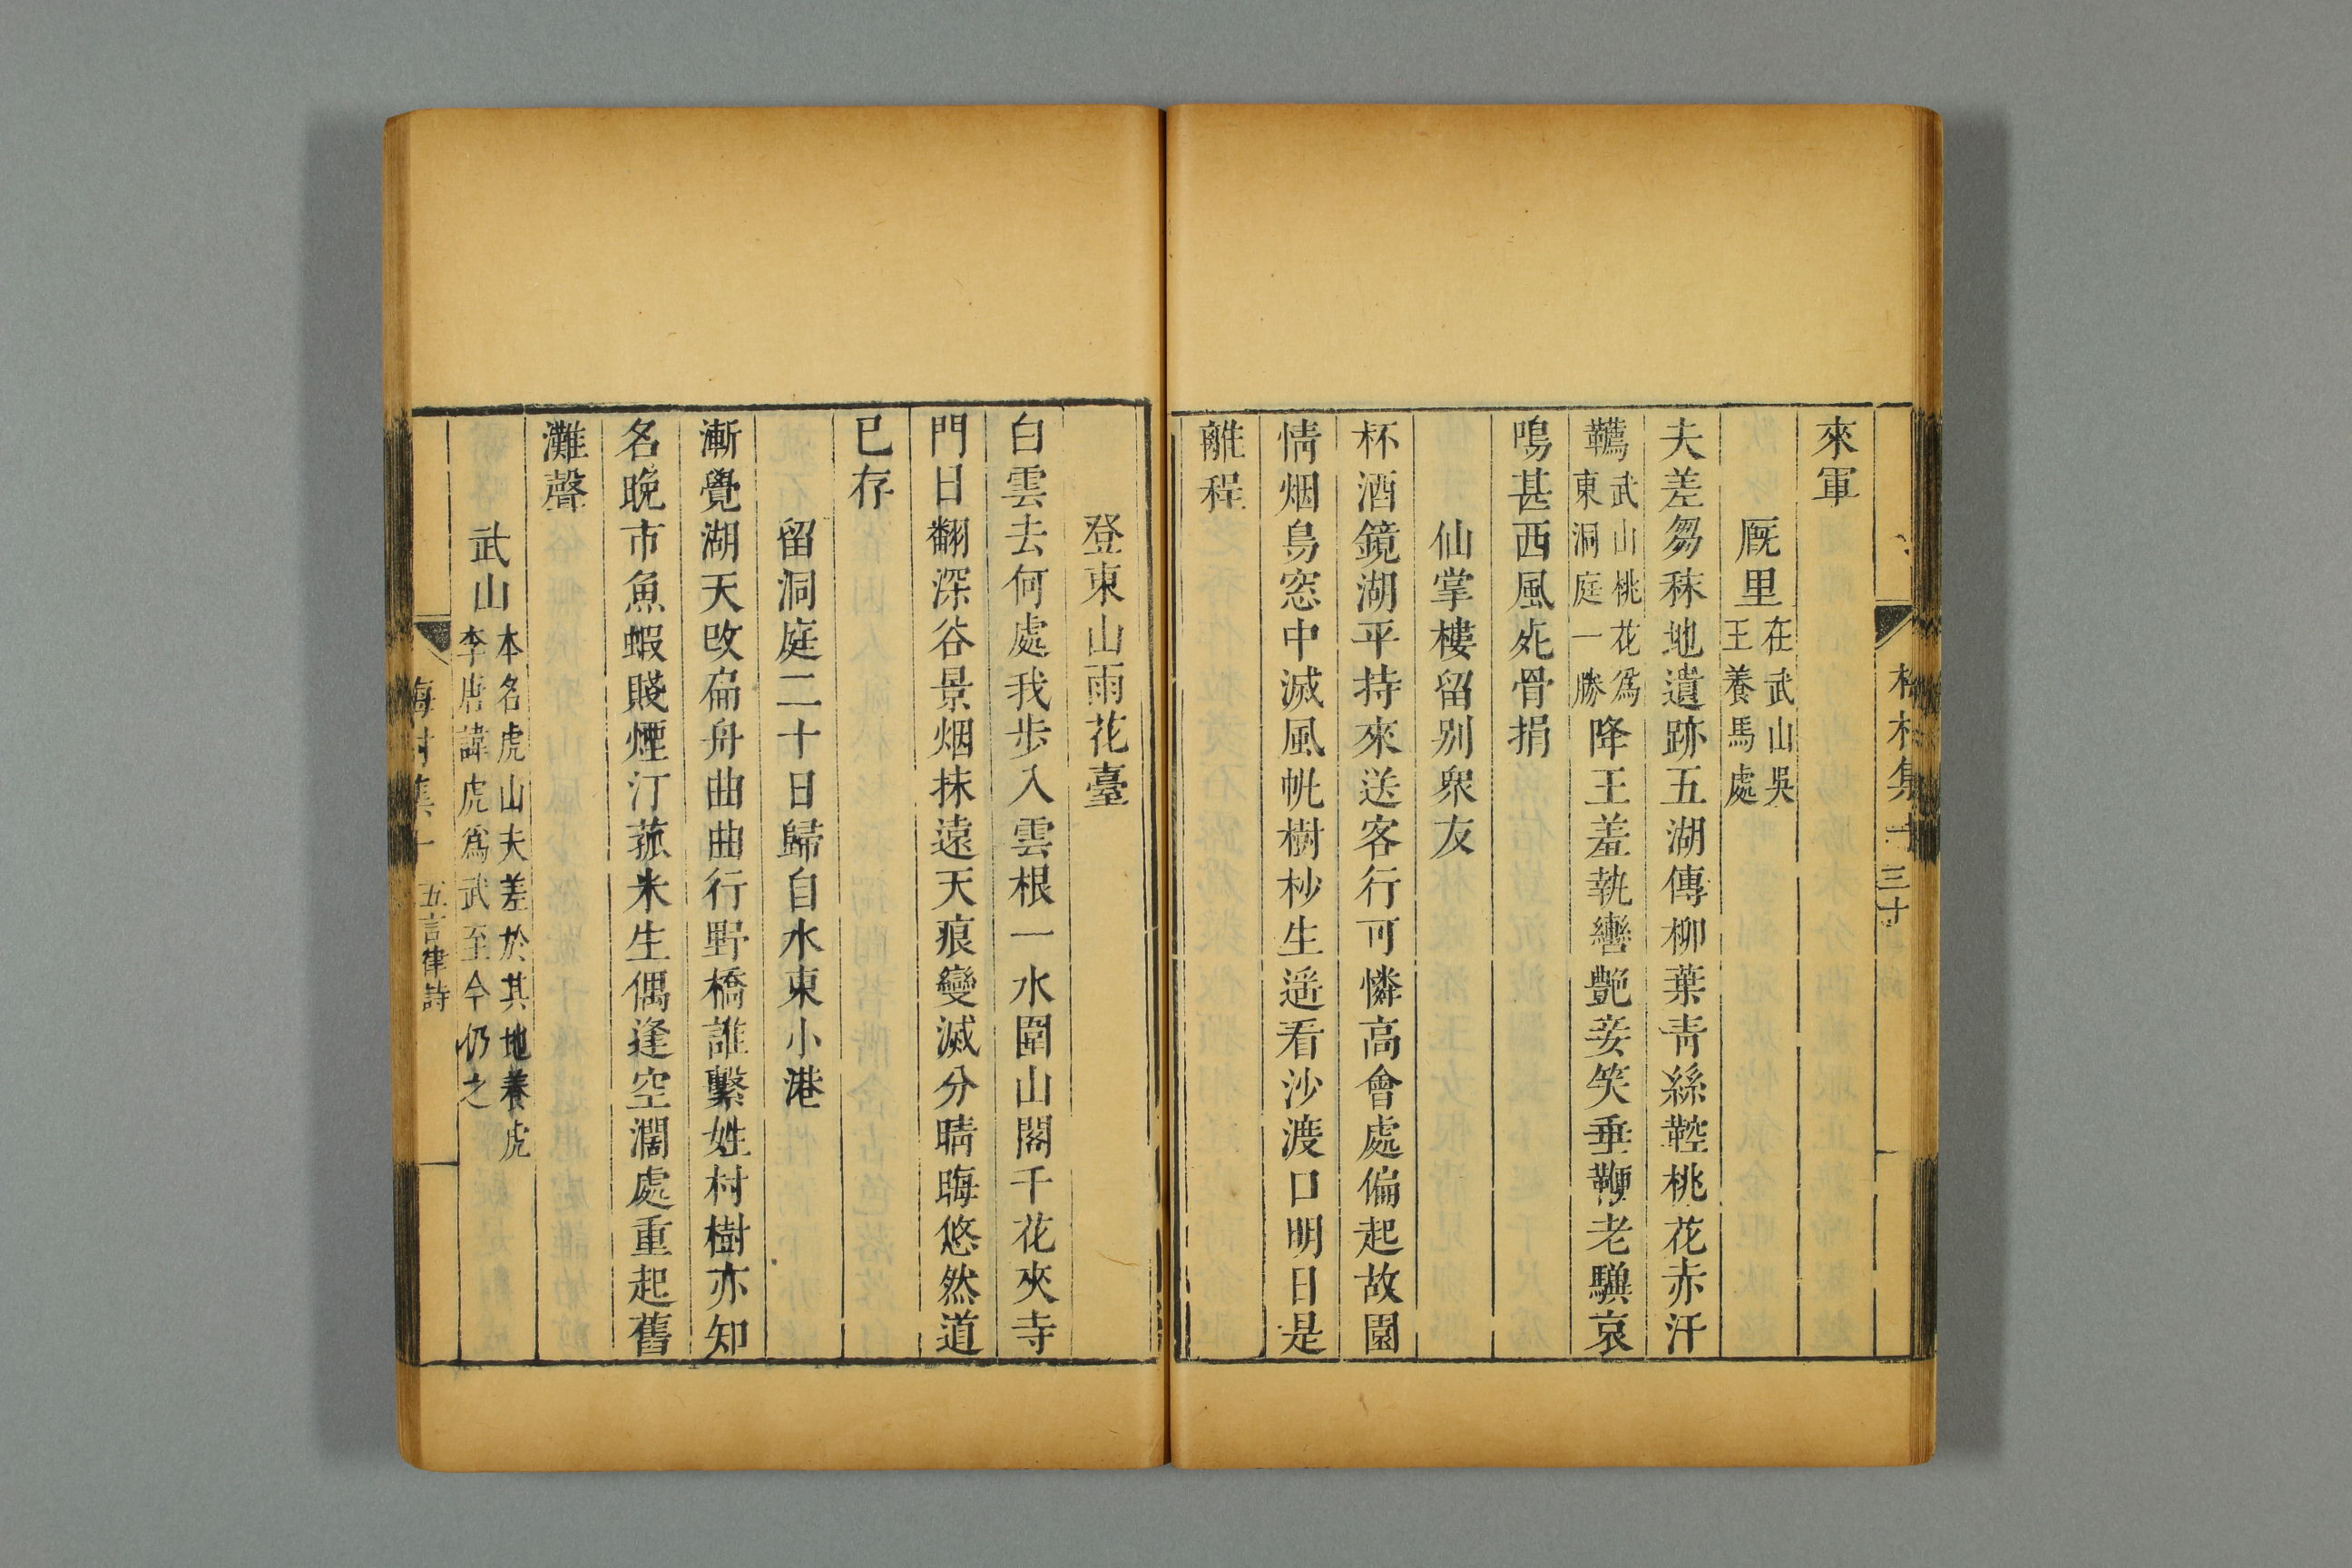 來軍
廐里
在武山吳
王養馬處
夫差芻秣地遺跡五湖傳柳葉青絲鞚桃花赤汗
韉
武山桃花爲
東洞庭一勝
降王羞執轡艷妾笑垂鞭老驥哀
鳴甚西風死骨捐
仙掌樓留別衆友
杯酒鏡湖平持來送客行可憐高會處偏起故園
情烟鳥窓中滅風帆樹杪生遥看沙渡口明日是
離程
三十
登東山雨花臺
白雲去何處我步入雲根一水圍山閣千花夾寺
門日翻深谷景烟抹遠天痕變滅分晴晦悠然道
已存
留洞庭二十日歸自水東小港
漸覺湖天改扁舟曲曲行野橋誰繫姓村樹亦知
名晚市魚蝦賤煙汀菰米生偶逢空濶處重起舊
灘聲
武山
本名虎山夫差於其地養虎
李唐諱虎爲武至今仍之
梅村集十 五言律詩